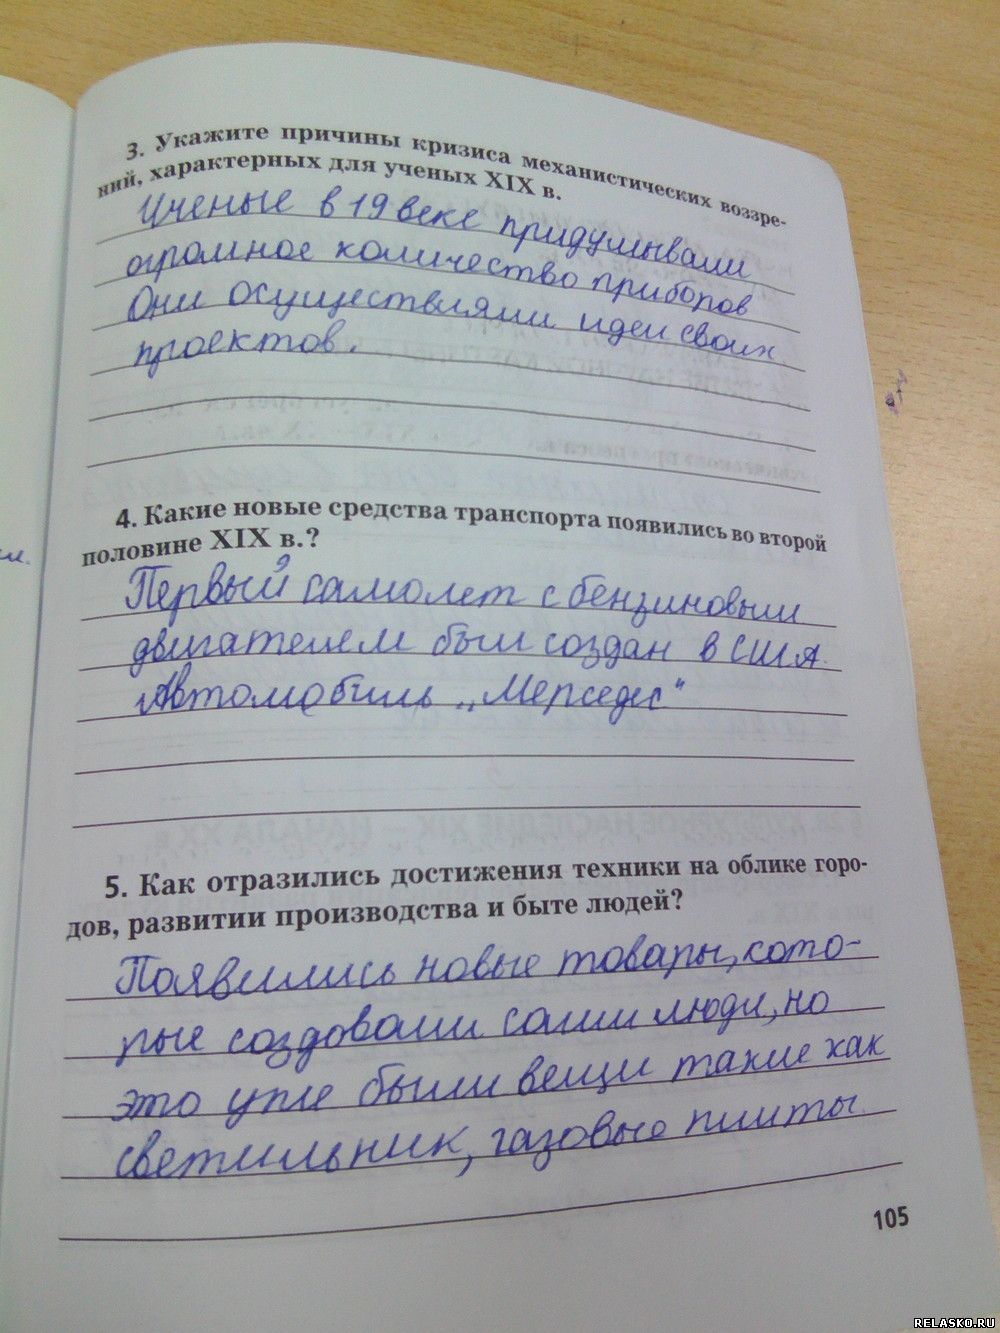 3. Укажите причины кризиса механистических воззре-
ний, характерных для ученых XIX в.
Ученые в 19 веке придумывали
огромное количество приборов
Они осуществляли идеи своих
проектов.
4. Какие новые средства транспорта появились во второй
половине XIX в.?
Первый самолет с бензиновым
двигателем был создан в США.
Автомобиль „Мерседес“
5. Как отразились достижения техники на облике горо-
дов, развитии производства и быте людей?
Появились новые товары, кото-
рые создовали сами люди, но
это уже были вещи такие как
светильник, газовые плиты.
105
RELASKO.RU